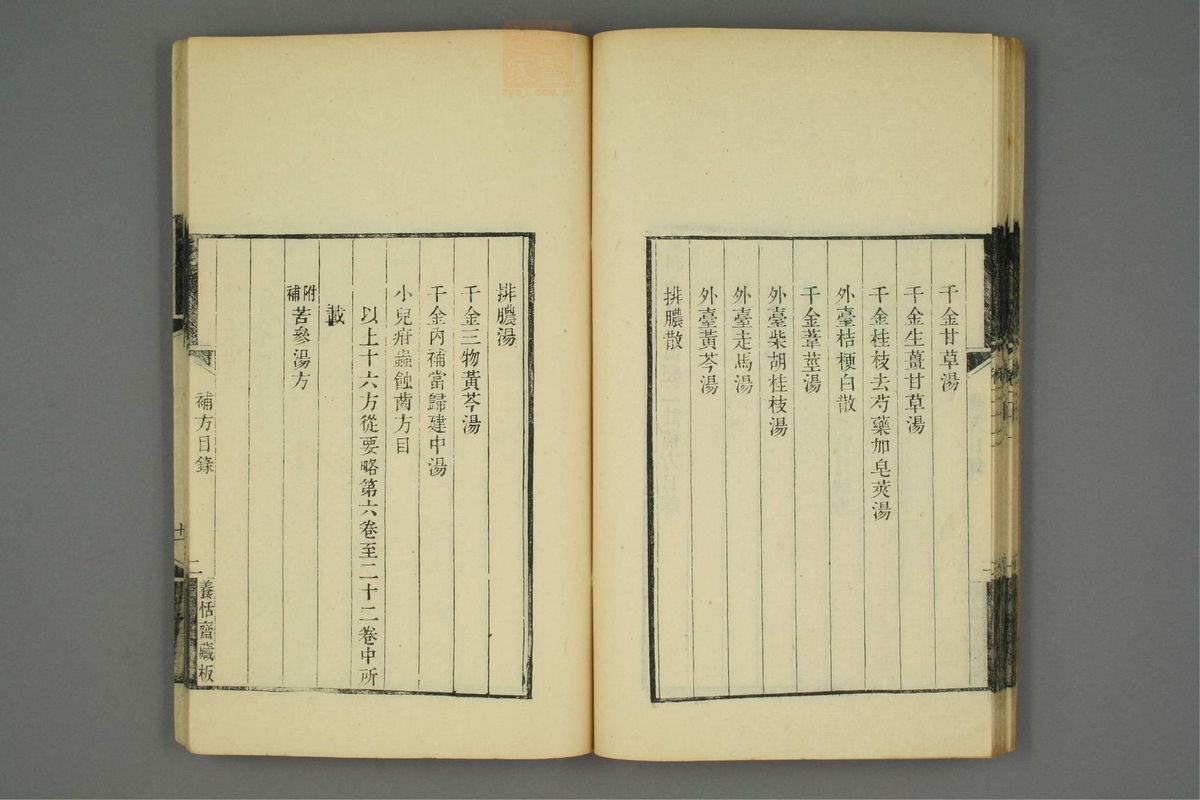 千金甘草湯
千金生薑甘草湯
千金桂枝去芍藥加皂莢湯
外臺桔梗白散
千金葦莖湯
外臺柴胡桂枝湯
外臺走馬湯
外臺黃芩湯
排膿散
排膿湯
千金三物黃芩湯
千金內補當歸建中湯
小兒疳蟲蝕齒方目
以上十六方從要略第六卷至二十二卷中所
載
附補苦參湯方
補方目錄
二
養恬齋藏板